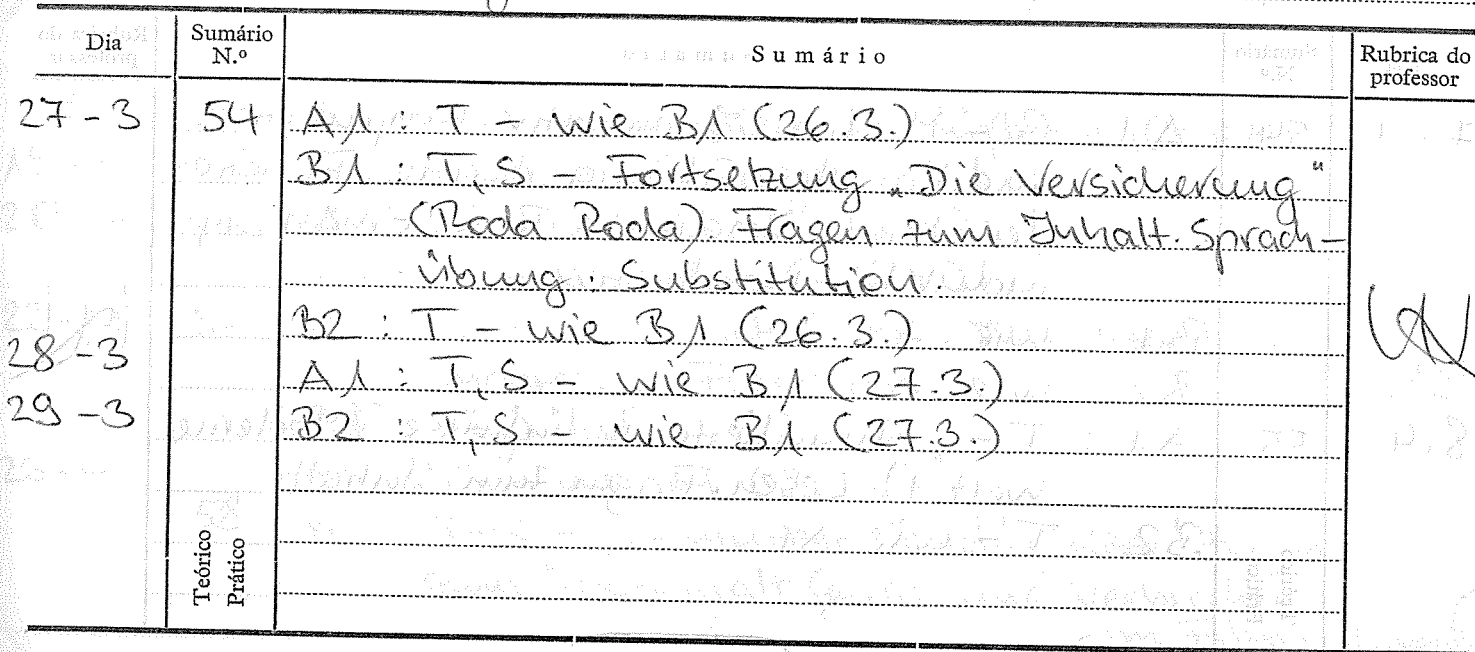 Dia Sumário N.º Sumário Rubrica do professor
27-3 54 A1 : T - wie B1 (26.3.)
B1 : T, S - Fortsetzung „Die Versicherung“
(Roda Roda). Fragen zum Inhalt. Sprach-
übung: Substitution.
B2 : T - wie B1 (26.3.)
28-3 A1 : T, S - wie B1 (27.3.)
29-3 B2 : T, S - wie B1 (27.3.)
Teórico
Prático